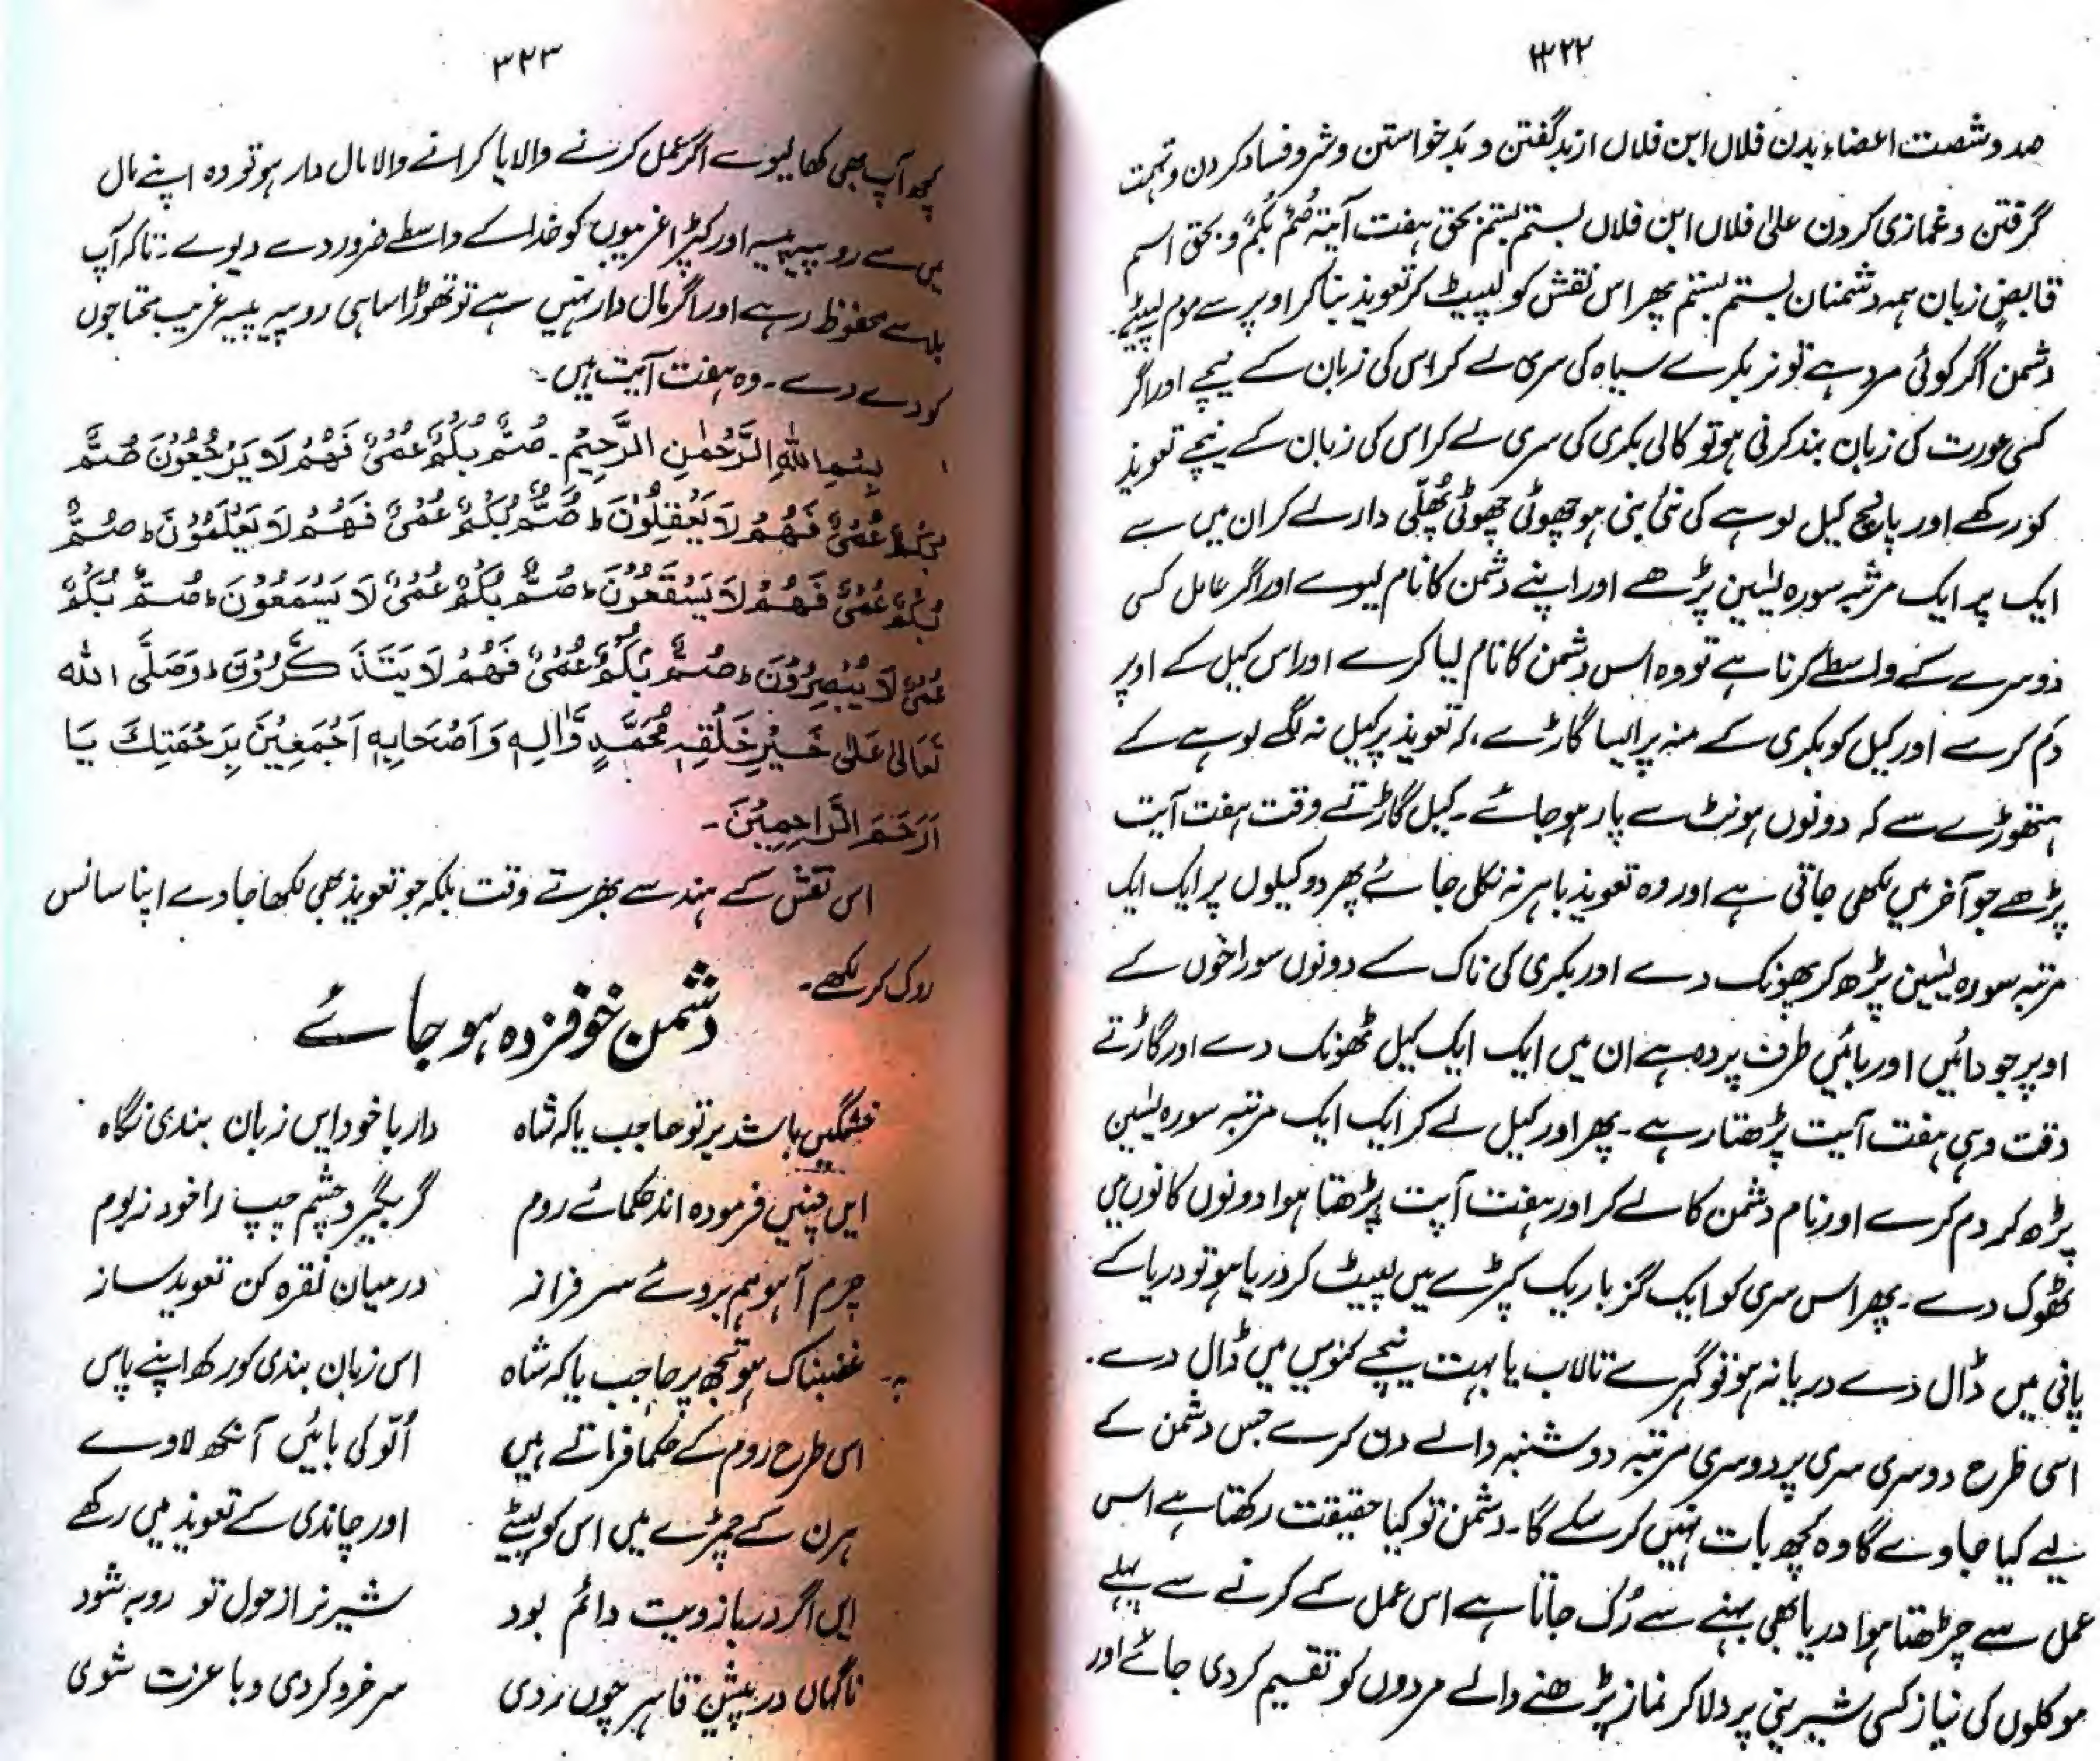 ۳۲۲
صد و شصت اعضاء بدن فلاں ابن فلاں از بد گفتن و بد خواستن و شر و فساد کردن و تہمت
گرفتن و غمازی کردن علیٰ فلاں ابن فلاں بستم بستم بحق ہفت آیۃ صُمٌّ بُکْمٌ و بحق اسم
قابض زبان ہمہ دشمنان بستم بستم پھر اس نقش کو لپیٹ کر تعویذ بنا کر اوپر سے موم لپیٹے۔
دشمن اگر کوئی مرد ہے تو نر بکرے سیاہ کی سری لے کر اس کی زبان کے نیچے اور اگر
کسی عورت کی زبان بند کرنی ہو تو کالی بکری کی سری لے کر اس کی زبان کے نیچے تعویذ
کو رکھے اور پانچ کیل لوہے کی نئی بنی ہو چھوٹی چھوٹی پُھلّی دار لے کر ان میں سے
ایک پر ایک مرتبہ سورہ یٰسین پڑھے اور اپنے دشمن کا نام لیوے اور اگر عامل کسی
دوسرے کے واسطے کرتا ہے تو وہ اس دشمن کا نام لیا کرے اور اس کیل کے اوپر
دم کرے اور کیل کو بکری کے منہ پر ایسا گاڑے، کہ تعویذ پر کیل نہ لگے لوہے کے
ہتھوڑے سے کہ دونوں ہونٹ سے پار ہو جائے۔ کیل گاڑتے وقت ہفت آیت
پڑھے جو آخر میں لکھی جاتی ہے اور وہ تعویذ باہر نہ نکل جائے پھر دو کیلوں پر ایک ایک
مرتبہ سورہ یٰسین پڑھ کر پھونک دے اور بکری کی ناک کے دونوں سوراخوں کے
اوپر جو دائیں اور بائیں طرف پردہ ہے ان میں ایک ایک کیل ٹھونک دے اور گاڑتے
وقت وہی ہفت آیت پڑھتا رہے۔ پھر اور کیل لے کر ایک ایک مرتبہ سورہ یٰسین
پڑھ کر دم کرے اور نام دشمن کا لے کر اور ہفت آیت پڑھتا ہوا دونوں کانوں میں
ٹھوک دے۔ پھر اس سری کو ایک گز باریک کپڑے میں لپیٹ کر دریا ہو تو دریا کے
پانی میں ڈال دے دریا نہ ہو تو گہرے تالاب یا بہت نیچے کنویں میں ڈال دے۔
اسی طرح دوسری سری پر دوسری مرتبہ دوشنبہ والے دن کرے جس دشمن کے
لیے کیا جاوے گا وہ کچھ بات نہیں کر سکے گا۔ دشمن تو کیا حقیقت رکھتا ہے اس
عمل سے چڑھتا ہوا دریا بھی بہنے سے رُک جاتا ہے اس عمل کے کرنے سے پہلے
موکلوں کی نیاز کسی شیرینی پر دلا کر نماز پڑھنے والے مردوں کو تقسیم کر دی جائے اور
۳۲۳
کچھ آپ بھی کھا لیوے اگر عمل کرنے والا یا کرانے والا مال دار ہو تو وہ اپنے مال
میں سے روپیہ پیسہ اور کپڑا غریبوں کو خدا کے واسطے ضرور دے دیوے۔ تاکہ آپ
بلا سے محفوظ رہے اور اگر مال دار نہیں ہے تو تھوڑا سا ہی روپیہ پیسہ غریب محتاجوں
کو دے دے۔ وہ ہفت آیت ہیں۔
بِسْمِ اللهِ الرَّحْمٰنِ الرَّحِيْمِ۔ صُمٌّ بُكْمٌ عُمْىٌ فَهُمْ لَا يَرْجِعُوْنَ صُمٌّ
بُكْمٌ عُمْىٌ فَهُمْ لَا يَعْقِلُوْنَ ط صُمٌّ بُكْمٌ عُمْىٌ فَهُمْ لَا يَعْلَمُوْنَ ط صُمٌّ
بُكْمٌ عُمْىٌ فَهُمْ لَا يَسْقَعُوْنَ ط صُمٌّ بُكْمٌ عُمْىٌ لَا يَسْمَعُوْنَ ط صُمٌّ بُكْمٌ
عُمْىٌ لَا يُبْصِرُوْنَ ط صُمٌّ بُكْمٌ عُمْىٌ فَهُمْ لَا يَتَذَكَّرُوْنَ ط وَصَلَّى الله
تَعَالٰى عَلٰى خَيْرِ خَلْقِهٖ مُحَمَّدٍ وَّاٰلِهٖ وَاَصْحَابِهٖ اَجْمَعِيْنَ بِرَحْمَتِكَ يَا
اَرْحَمَ الرَّاحِمِيْنَ۔
اس نقش کے ہندسے بھرتے وقت بلکہ جو تعویذ بھی لکھا جاوے اپنا سانس
روک کر لکھے۔
دشمن خوفزدہ ہو جائے
خشمگیں باشد بر تو حاجب یا کہ شاہ    دار با خود ایں زبان بندی نگاہ
ایں چنیں فرمودہ اند حکمائے روم    گر بگیر و چشم چپ را خود ز بوم
چرم آہو ہم بروئے سر فراز    درمیان نقرہ کن تعویذ ساز
غضبناک ہو تجھ پر حاجب یا کہ شاہ    اس زبان بندی کو رکھ اپنے پاس
اسی طرح روم کے حکما فرماتے ہیں    اُلّو کی بائیں آنکھ لاوے
ہرن کے چمڑے میں اس کو لپیٹے    اور چاندی کے تعویذ میں رکھے
ایں اگر در بازویت دائم بود    شیر نر از حول تو روبہ شود
ناگہاں در پیش قاہر چوں ردی    سرخرو کردی و با عزت شوی